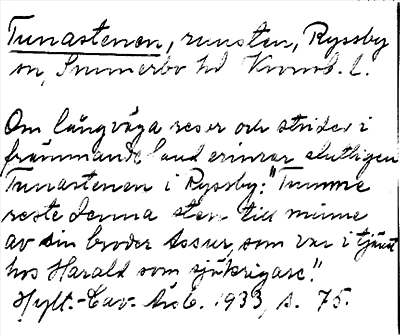 Tunastenen, runsten, Ryssby
sn, Sunnerbo hd Kronob. l.
Om långväga resor och strider i
främmande land erinrar slutligen
Tunastenen i Ryssby: "Tumme
reste denna sten till minne
av sin broder Assur, som var i tjänst
hos Harald som sjökrigare."
Hylt.-Cav. års b. 1933, s. 75.